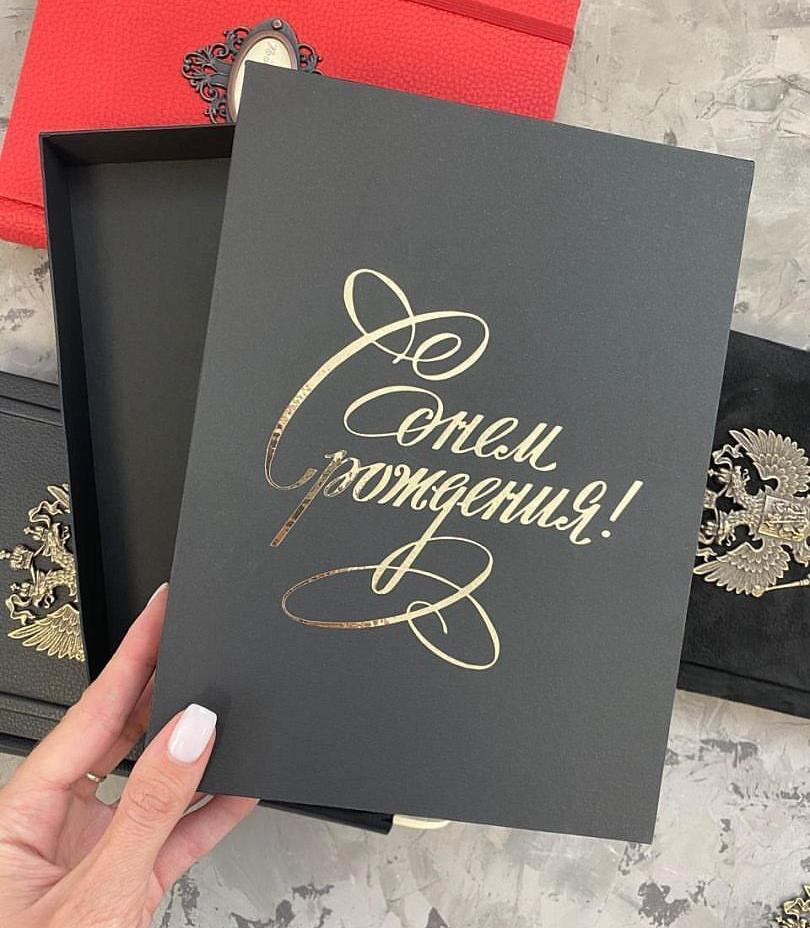 С Днем
рождения!